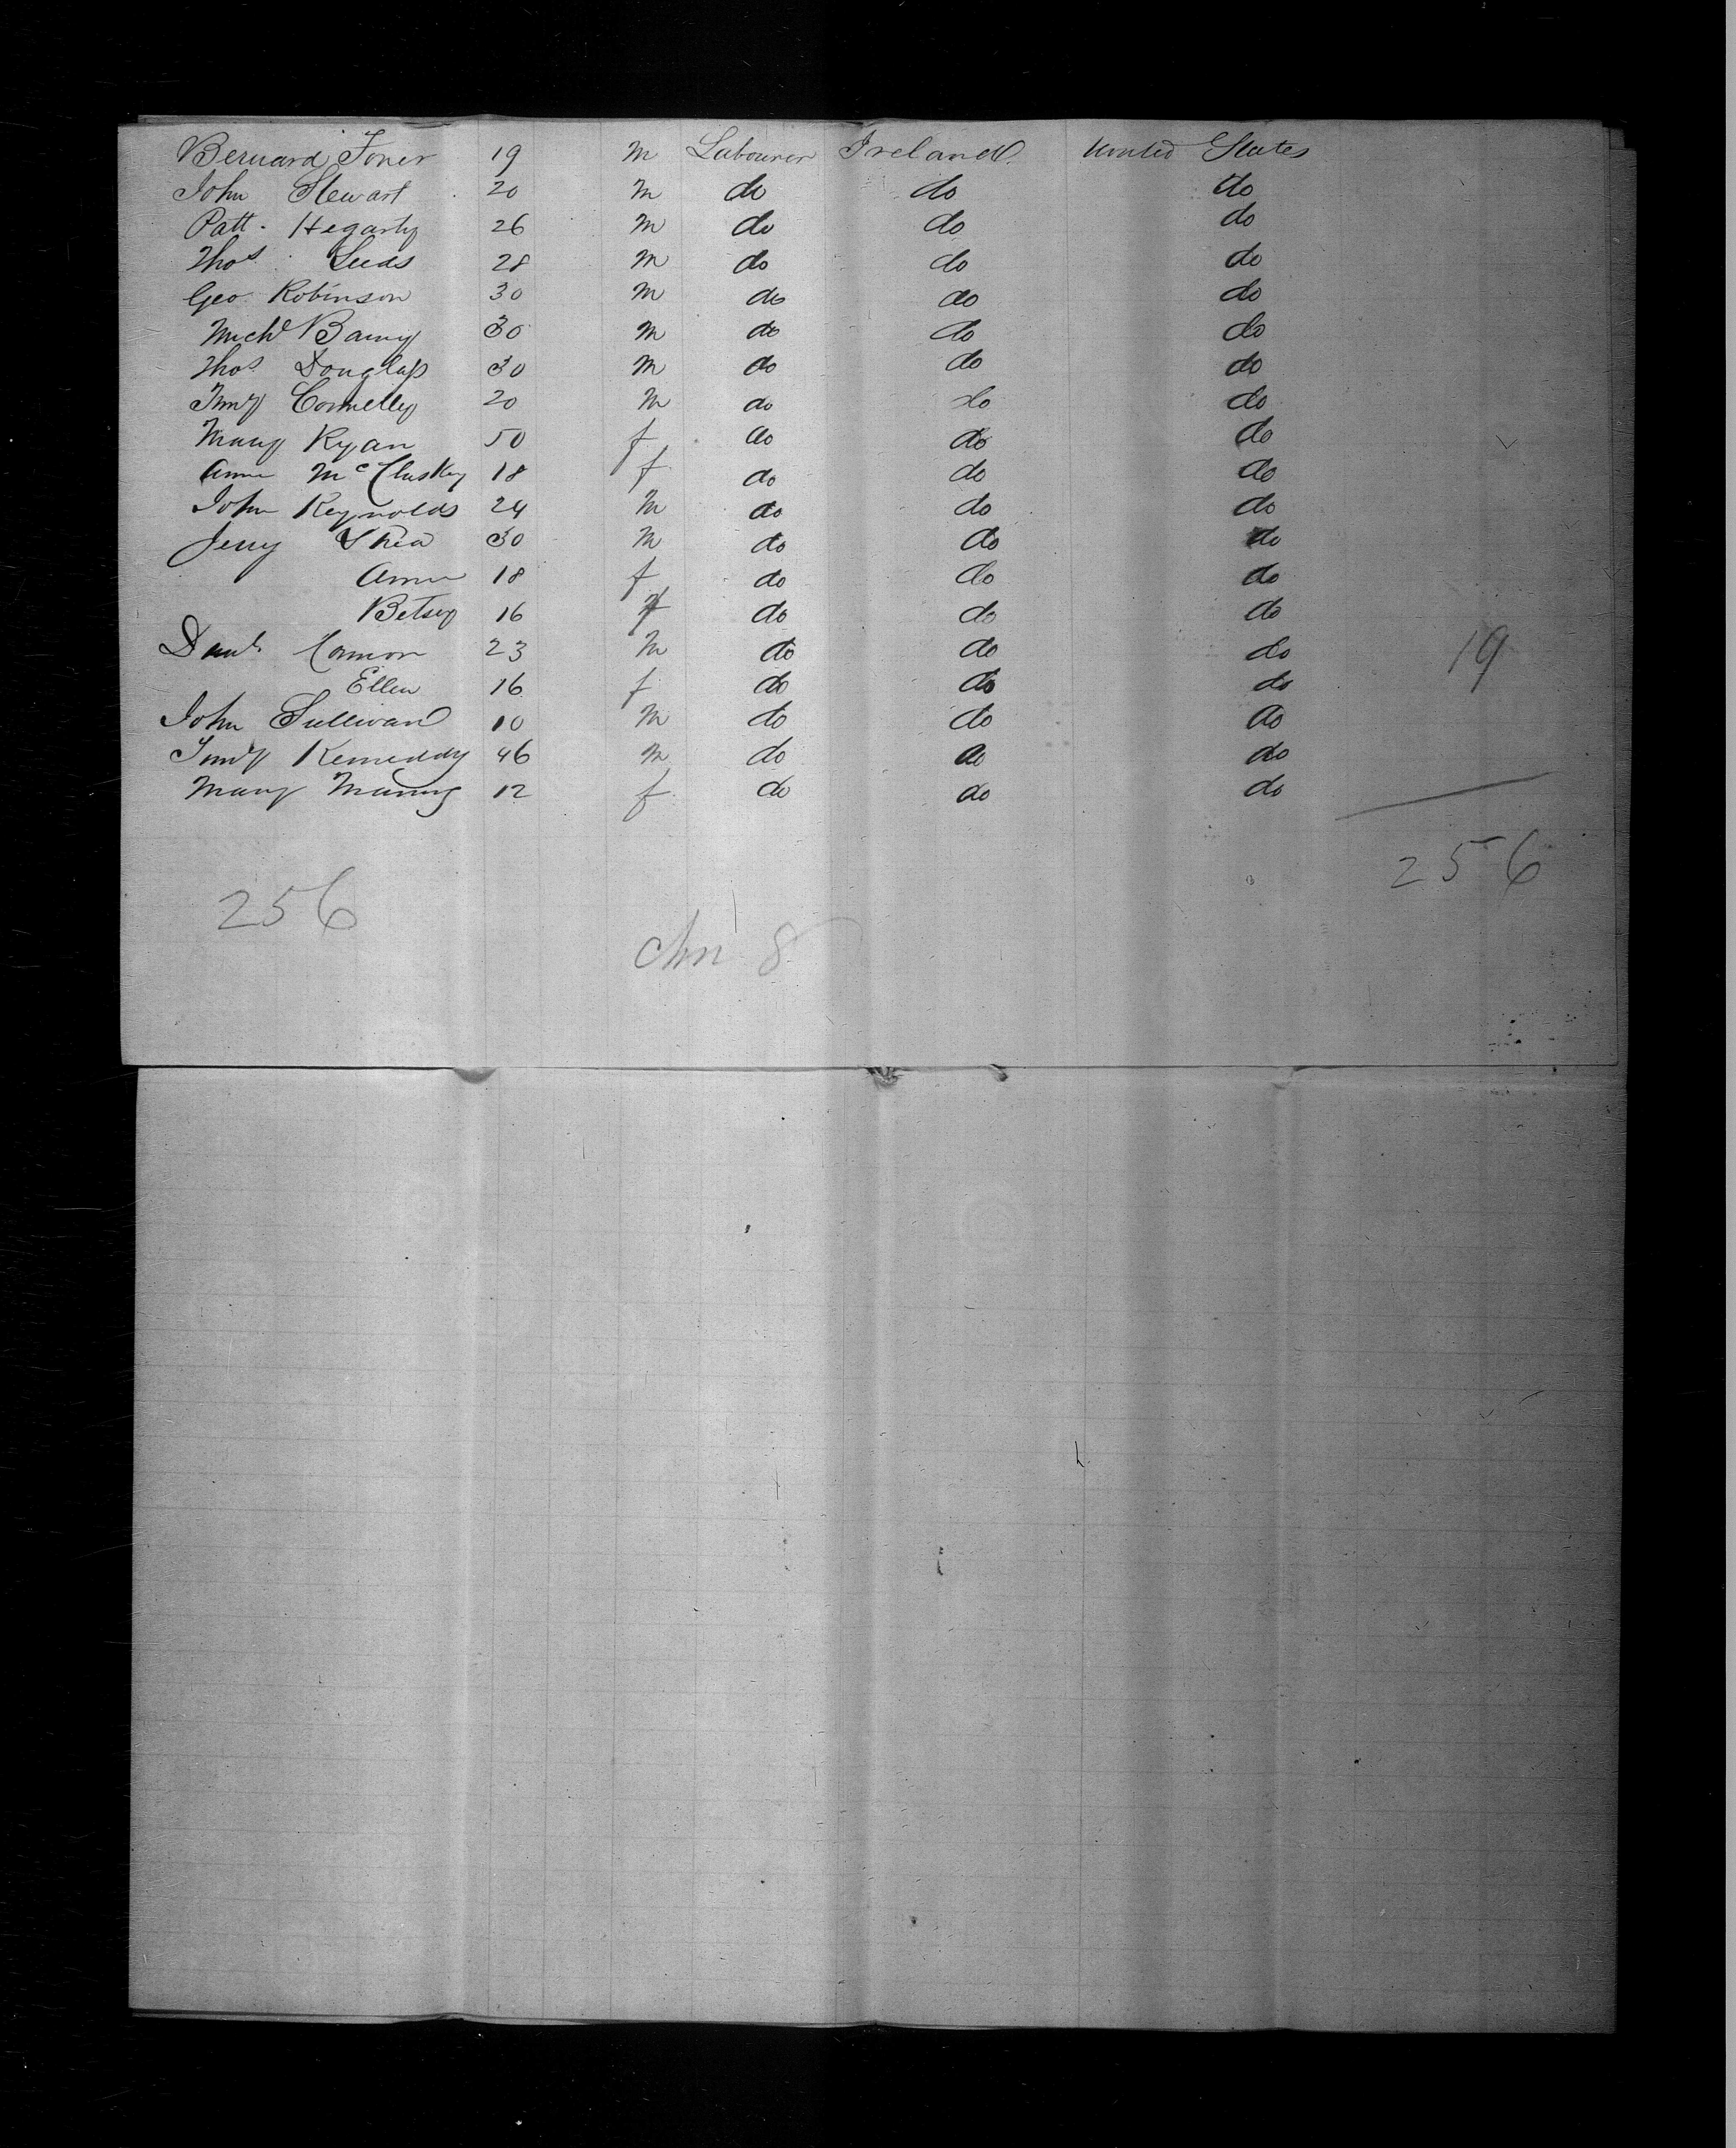 Bernard Toner 19 m Labourer Ireland United States
John Stewart 20 m do do do
Patt. Hegarty 26 m do do do
Thos Leeds 28 m do do do
Geo Robinson 30 m do do do
Michl Barry 30 m do do do
Thos Douglass 30 m do do do
Timy Connelly 20 m do do do
Mary Ryan 50 f do do do
Ann McCluskey 18 f do do do
John Reynolds 24 m do do do
Jerry Shea 30 m do do do
Ann 18 f do do do
Betsey 16 f do do do
Danl 23 m do do do
19
Ellen 16 f do do do
John Sullivan 10 m do do do
Timy Kenneddy 46 m do do do
Mary 12 f do do do
256
256
8